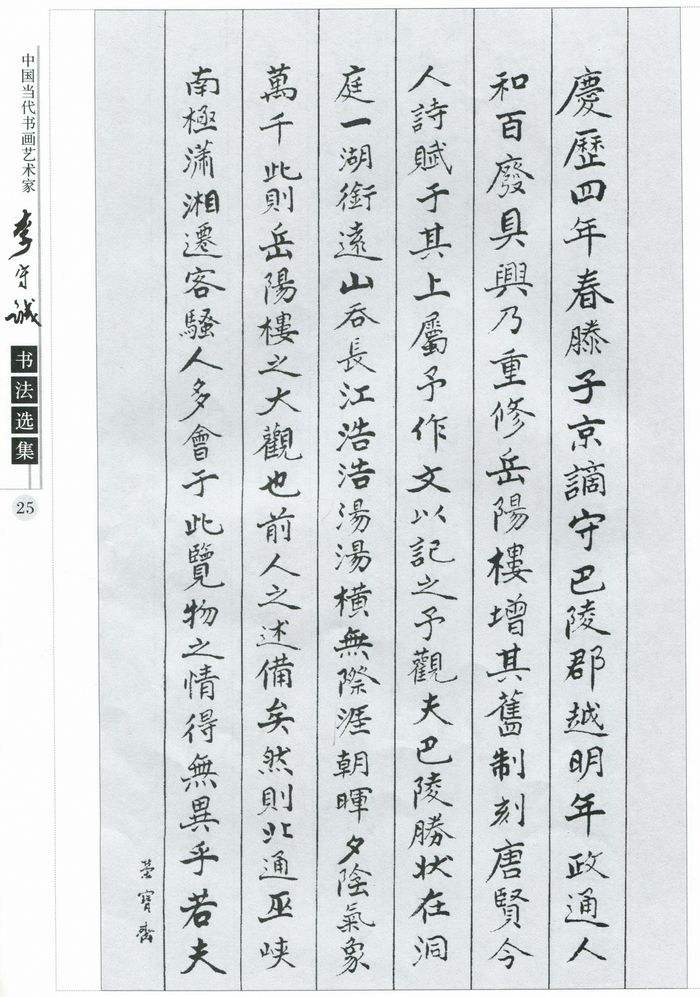 慶歷四年春滕子京謫守巴陵郡越明年政通人
和百廢具興乃重修岳陽樓增其舊制刻唐賢今
人詩賦于其上屬予作文以記之予觀夫巴陵勝狀在洞
庭一湖銜遠山吞長江浩浩湯湯橫無際涯朝暉夕陰氣象
萬千此則岳陽樓之大觀也前人之述備矣然則北通巫峽
南極瀟湘遷客騷人多會于此覽物之情得無異乎若夫
榮寶齋
中国当代书画艺术家
李守誠
书法选集
25